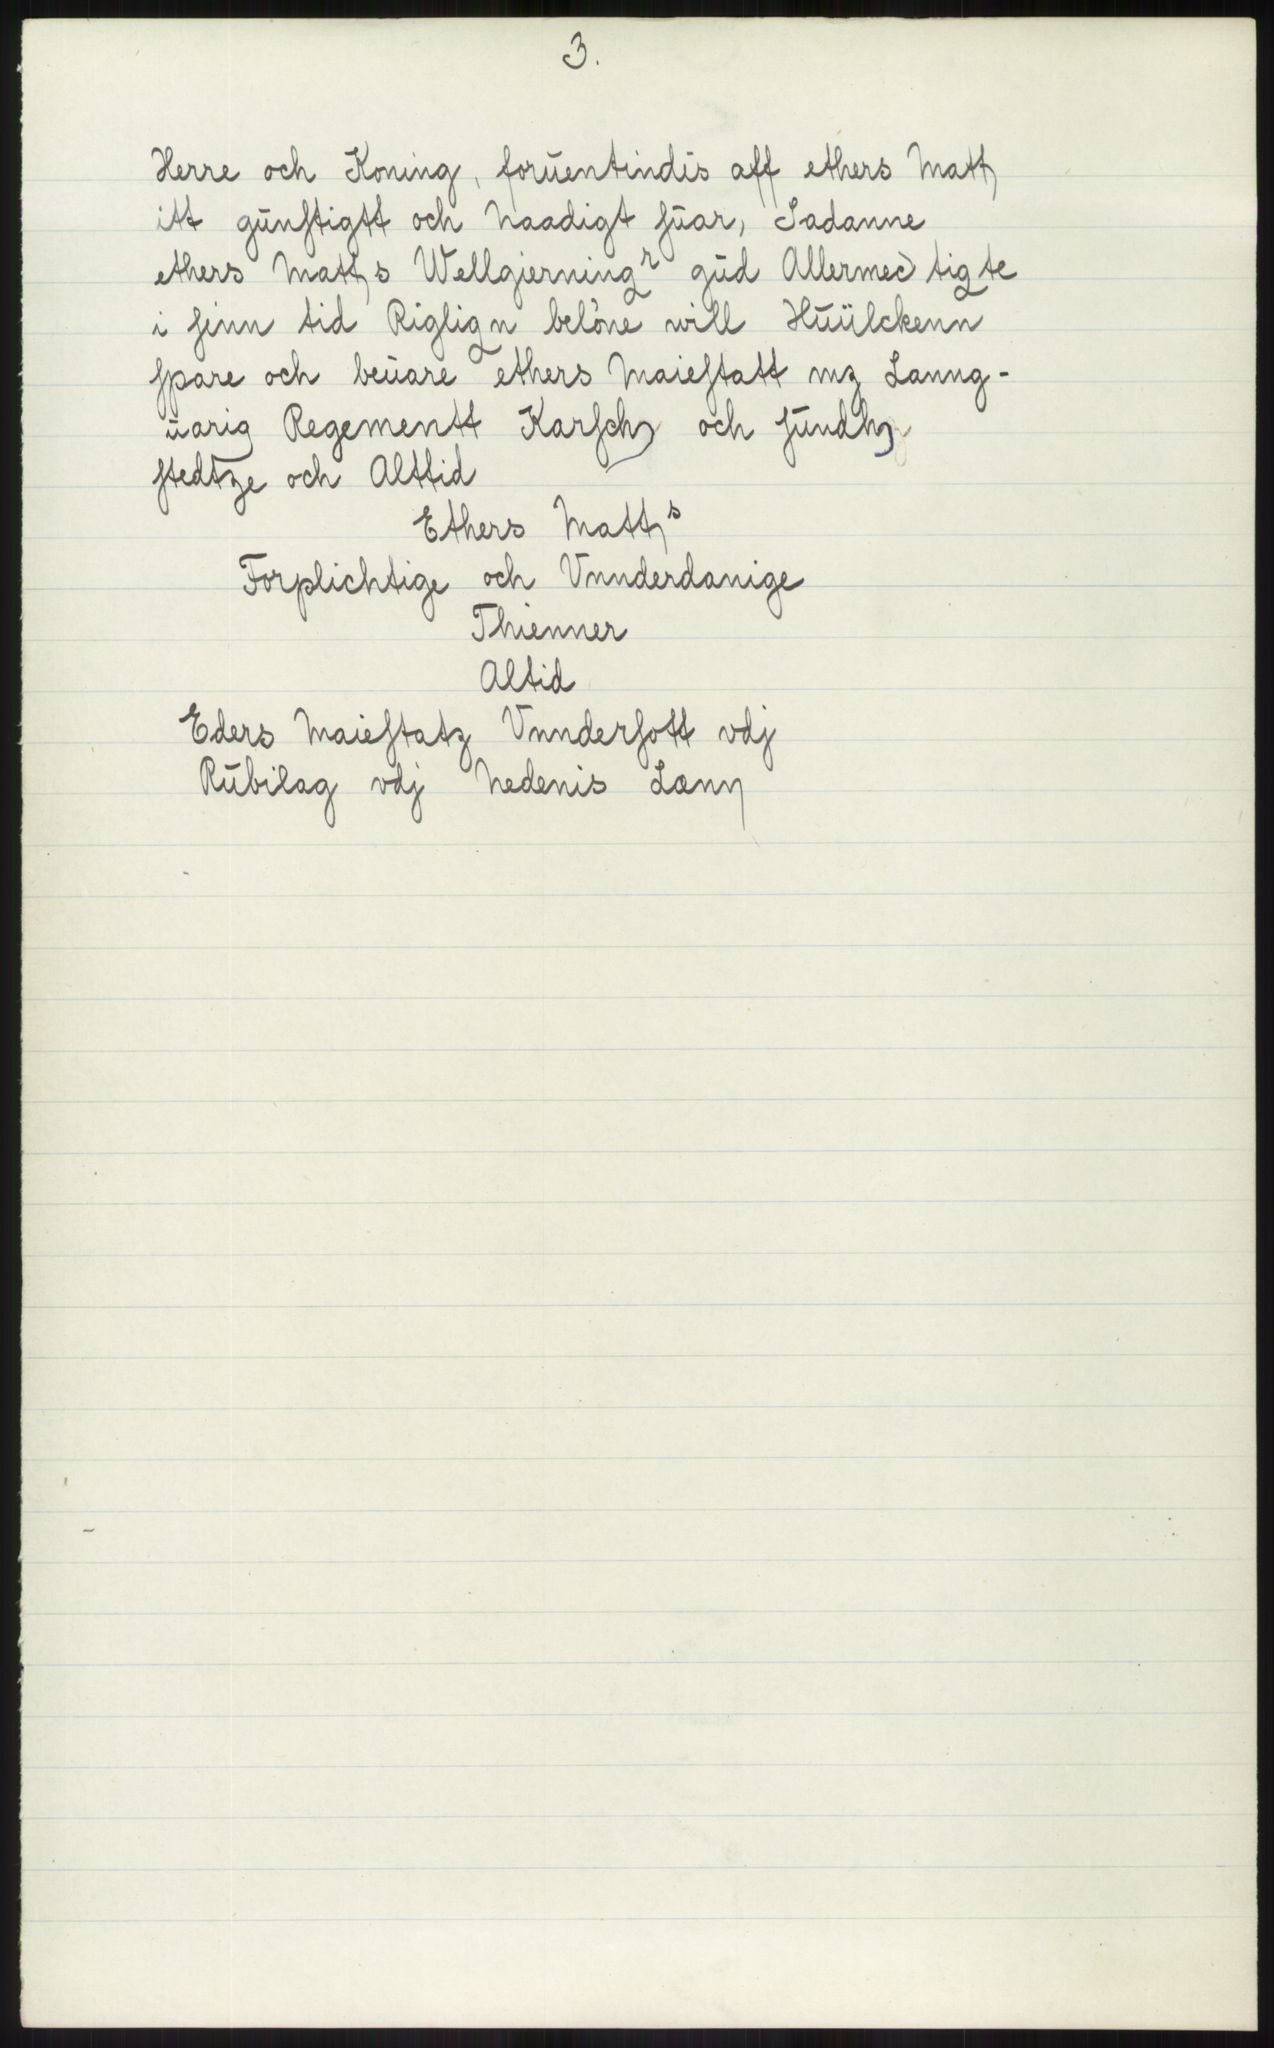 3.
Herre och Koning, forŭentindis aff ethers Matt
itt gŭnstigtt och Naadigt sŭar, Sadanne
ethers Matts Wellgierningr gŭd Allermectigte
i sinn tid Riglign belöne will Hŭŭlckenn
spare och beŭare ethers Maiestatt mz Lanng-
ŭarig Regementt Karsch och sŭndh
stedtze och Alttid
Ethers Matts
Forplichtige och Vnnderdanige
Thienner
Altid
Eders Maiestatz Vnndersott vdj
Rŭbilag vdj Nedenis Lænn